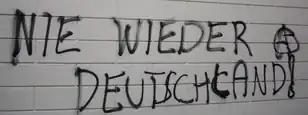 NIE WIEDER
DEUTSCHLAND!